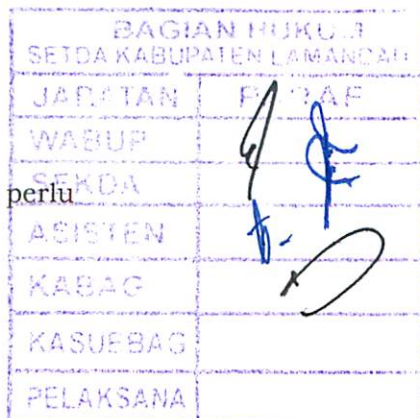 BAGIAN HUKUM
SETDA KABUPATEN LAMANDAU
JABATAN PARAF
WABUP
SEKDA
perlu
ASISTEN
KABAG
KASUBBAG
PELAKSANA